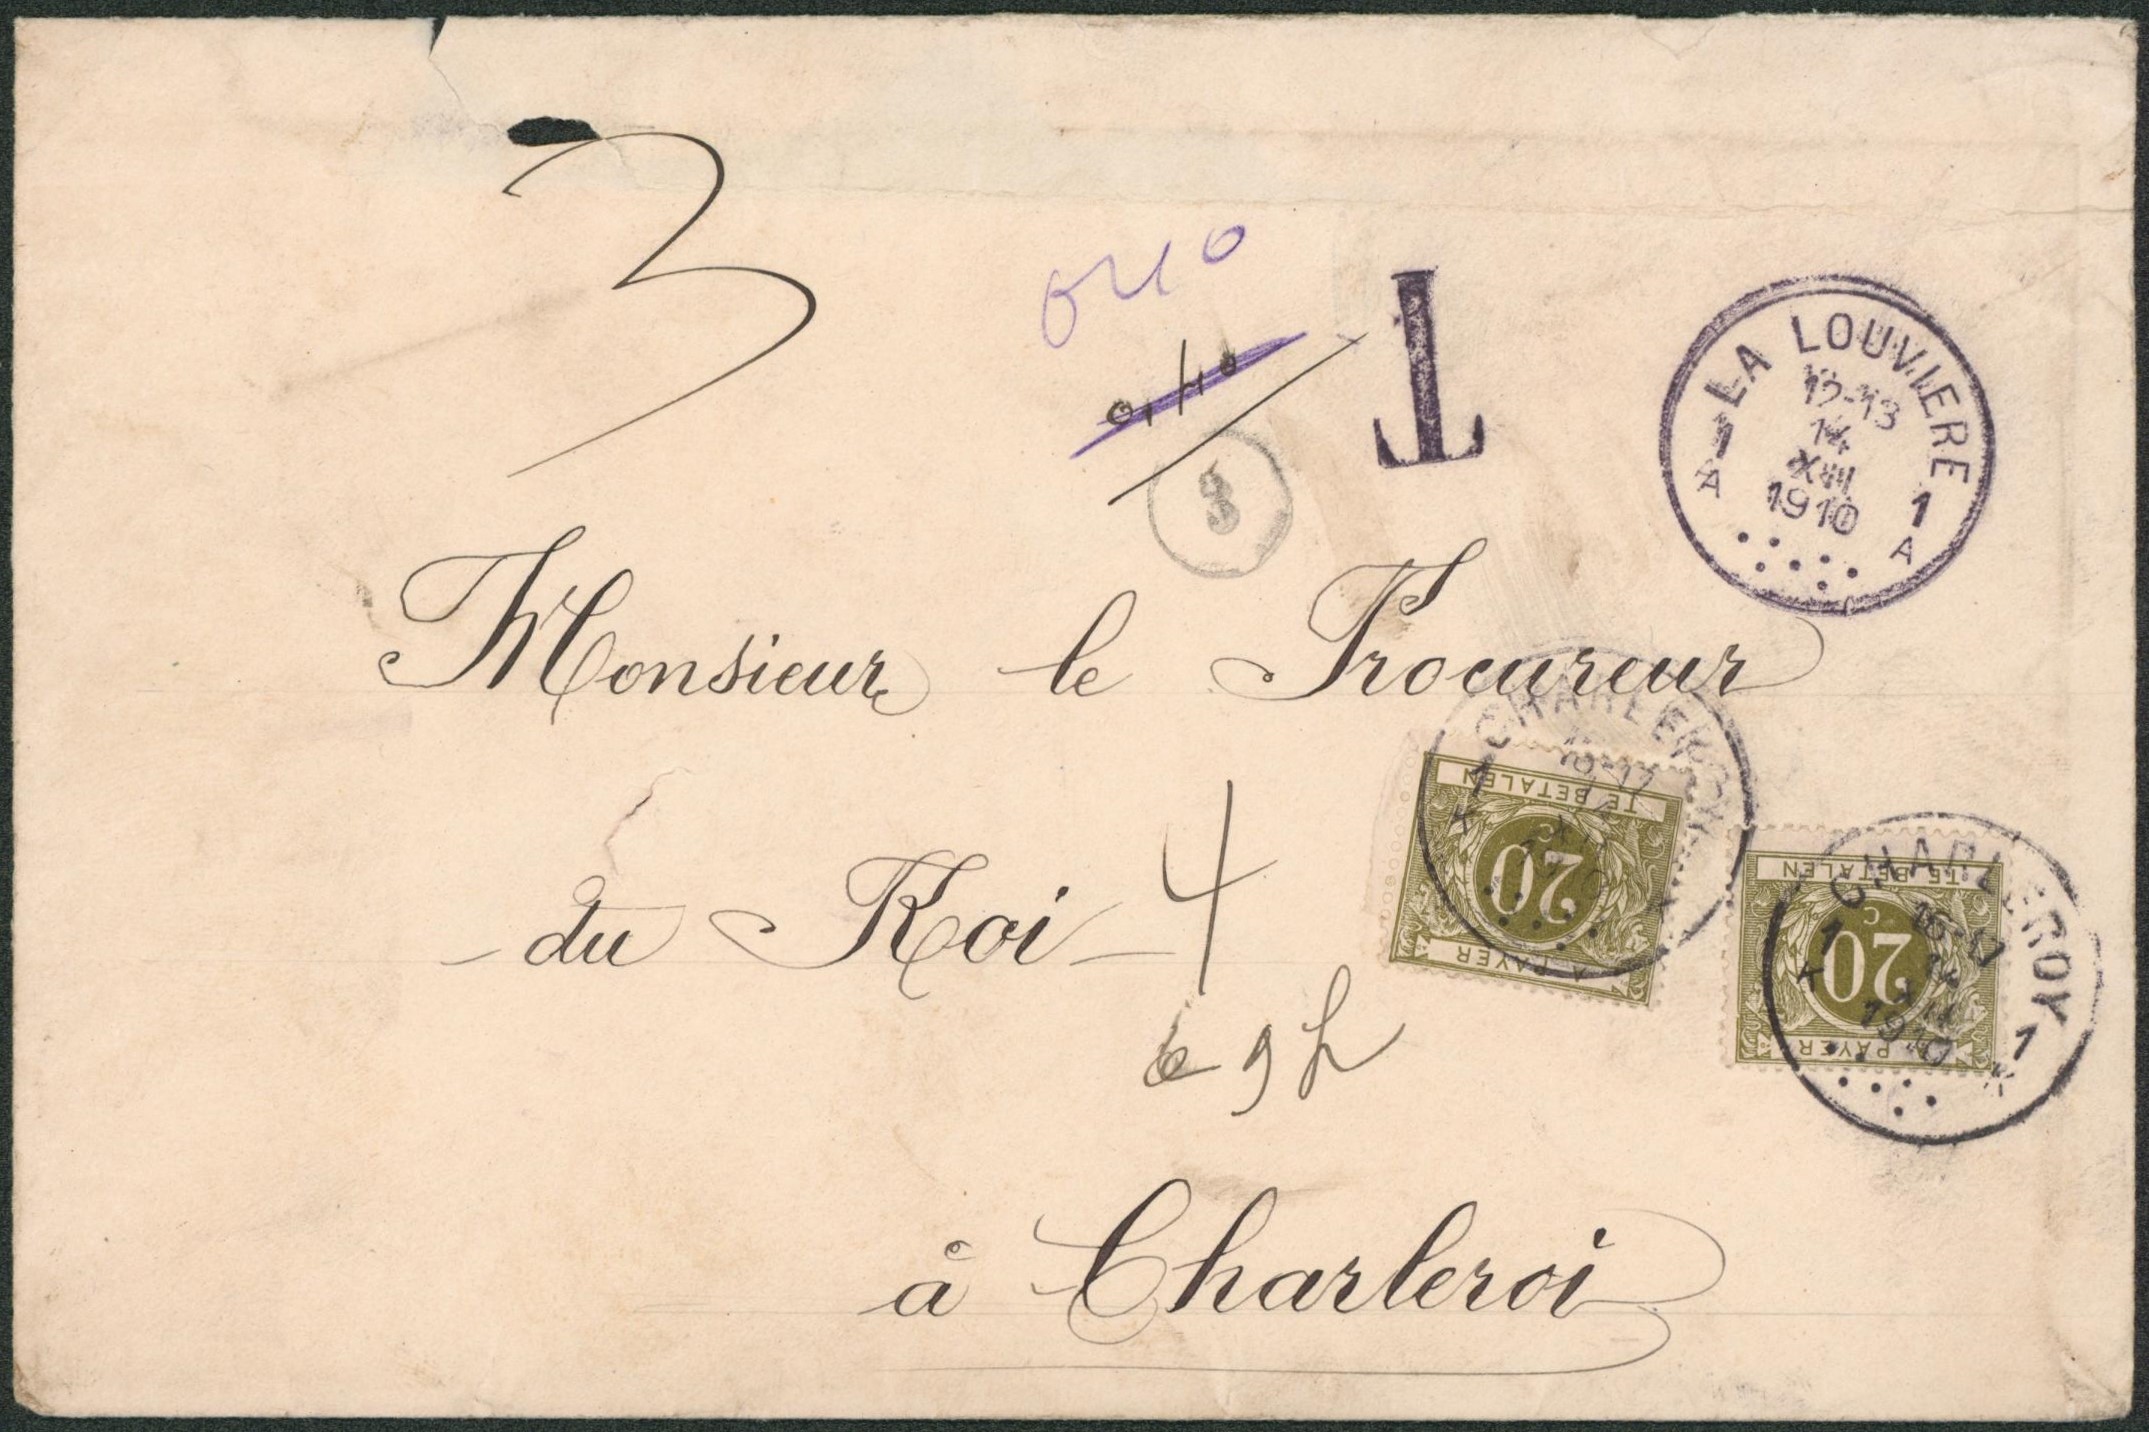 3
0,40
0,40
T
LA LOUVIERE
12-13
14
XII
1910
1 1
A A
3
Monsieur le Procureur
du Roi
4
9 h
à Charleroi
CHARLEROY
16-17
1
K
TE BETALEN
20 C.
A PAYER
CHARLEROY
16-17
14
XII
1910
1 1
K K
TE BETALEN
20 C.
A PAYER